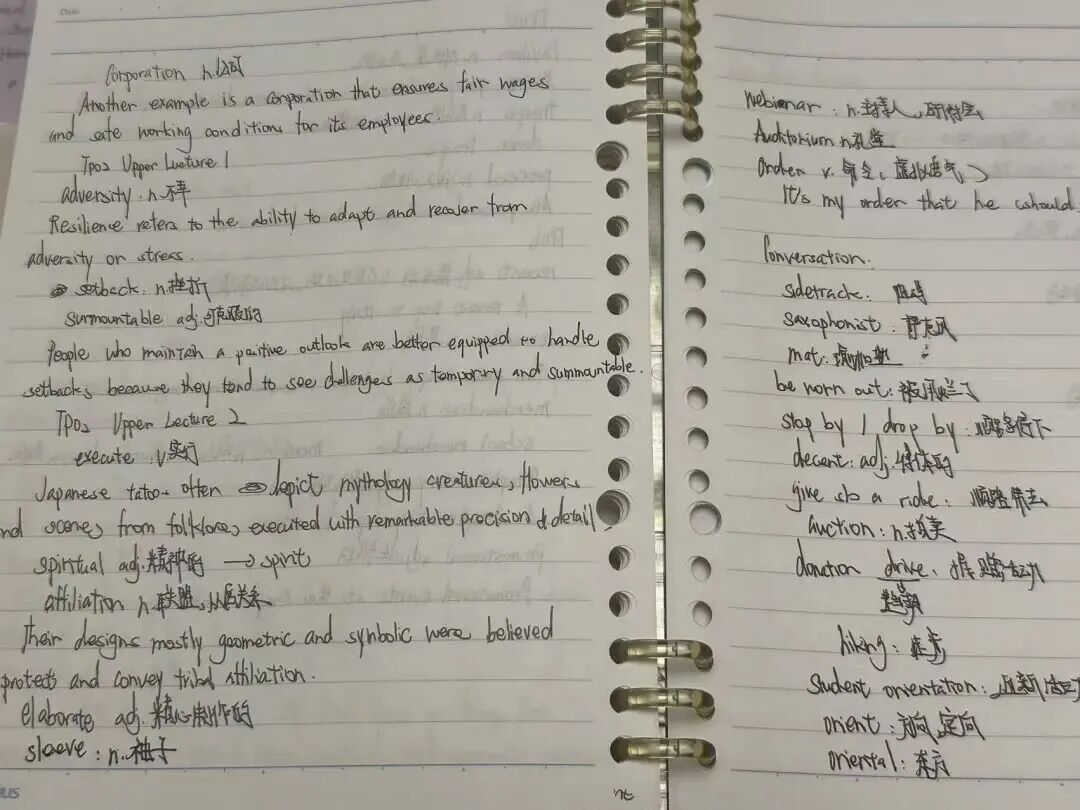 Corporation n.公司
Another example is a corporation that ensures fair wages
and safe working conditions for its employees.
TPO2 Upper Lecture 1
adversity. n.不幸
Resilience refers to the ability to adapt and recover from
adversity or stress.
setback. n.挫折
surmountable adj.可克服的
People who maintain a positive outlook are better equipped to handle
setbacks because they tend to see challenges as temporry and surmountable.
TPO2 Upper Lecture 2
execute. v.实行
Japanese tatoos often depict mythology creatures, flowers
nd scenes from folklores, executed with remarkable precision & detail.
spiritual adj.精神的 → spirit
affiliation n.联盟,从属关系
Their designs mostly geometric and synbolic were believed
protects and convey tribal affiliation.
elaborate adj.精心制作的
sleeve: n.袖子
webinar: n.主持人,研讨会
Auditorium n.礼堂
Order v.命令(虚拟语气)
It's my order that he should
Conversation.
sidetrack:
saxophonist:
mat: 瑜伽垫
be worn out: 被用烂了
stop by / drop by: 顺路停下
decent: adj.得体的
give sb a ride: 顺路带去
auction: n.拍卖
donation drive. 捐赠活动
hiking: 徒步
student orientation: 迎新活动
orient: 方向,定向
oriental: 东方